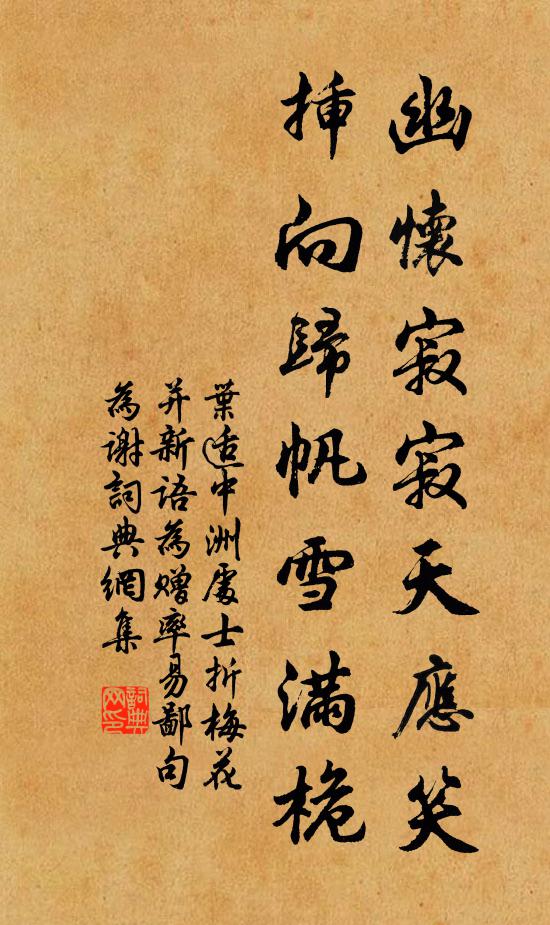 幽懷寂寂天應笑
挿向歸帆雪滿桅
葉适中洲處士折梅花
并新語為贈率易鄙句
為謝詞典網集
詞典網印